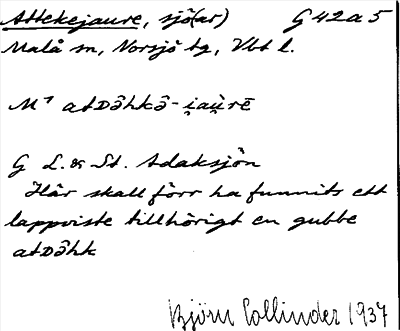 Attekejaure, sjö(ar) G 42 a 5
Malå sn, Norsjö tg, Vbt l.
M¹ atDə̑hkə̑-i̯au̯rē
G L. & St. Adaksjön
Här skall förr ha funnits ett
lappviste tillhörigt en gubbe
atDə̑hk
Björn Collinder 1937